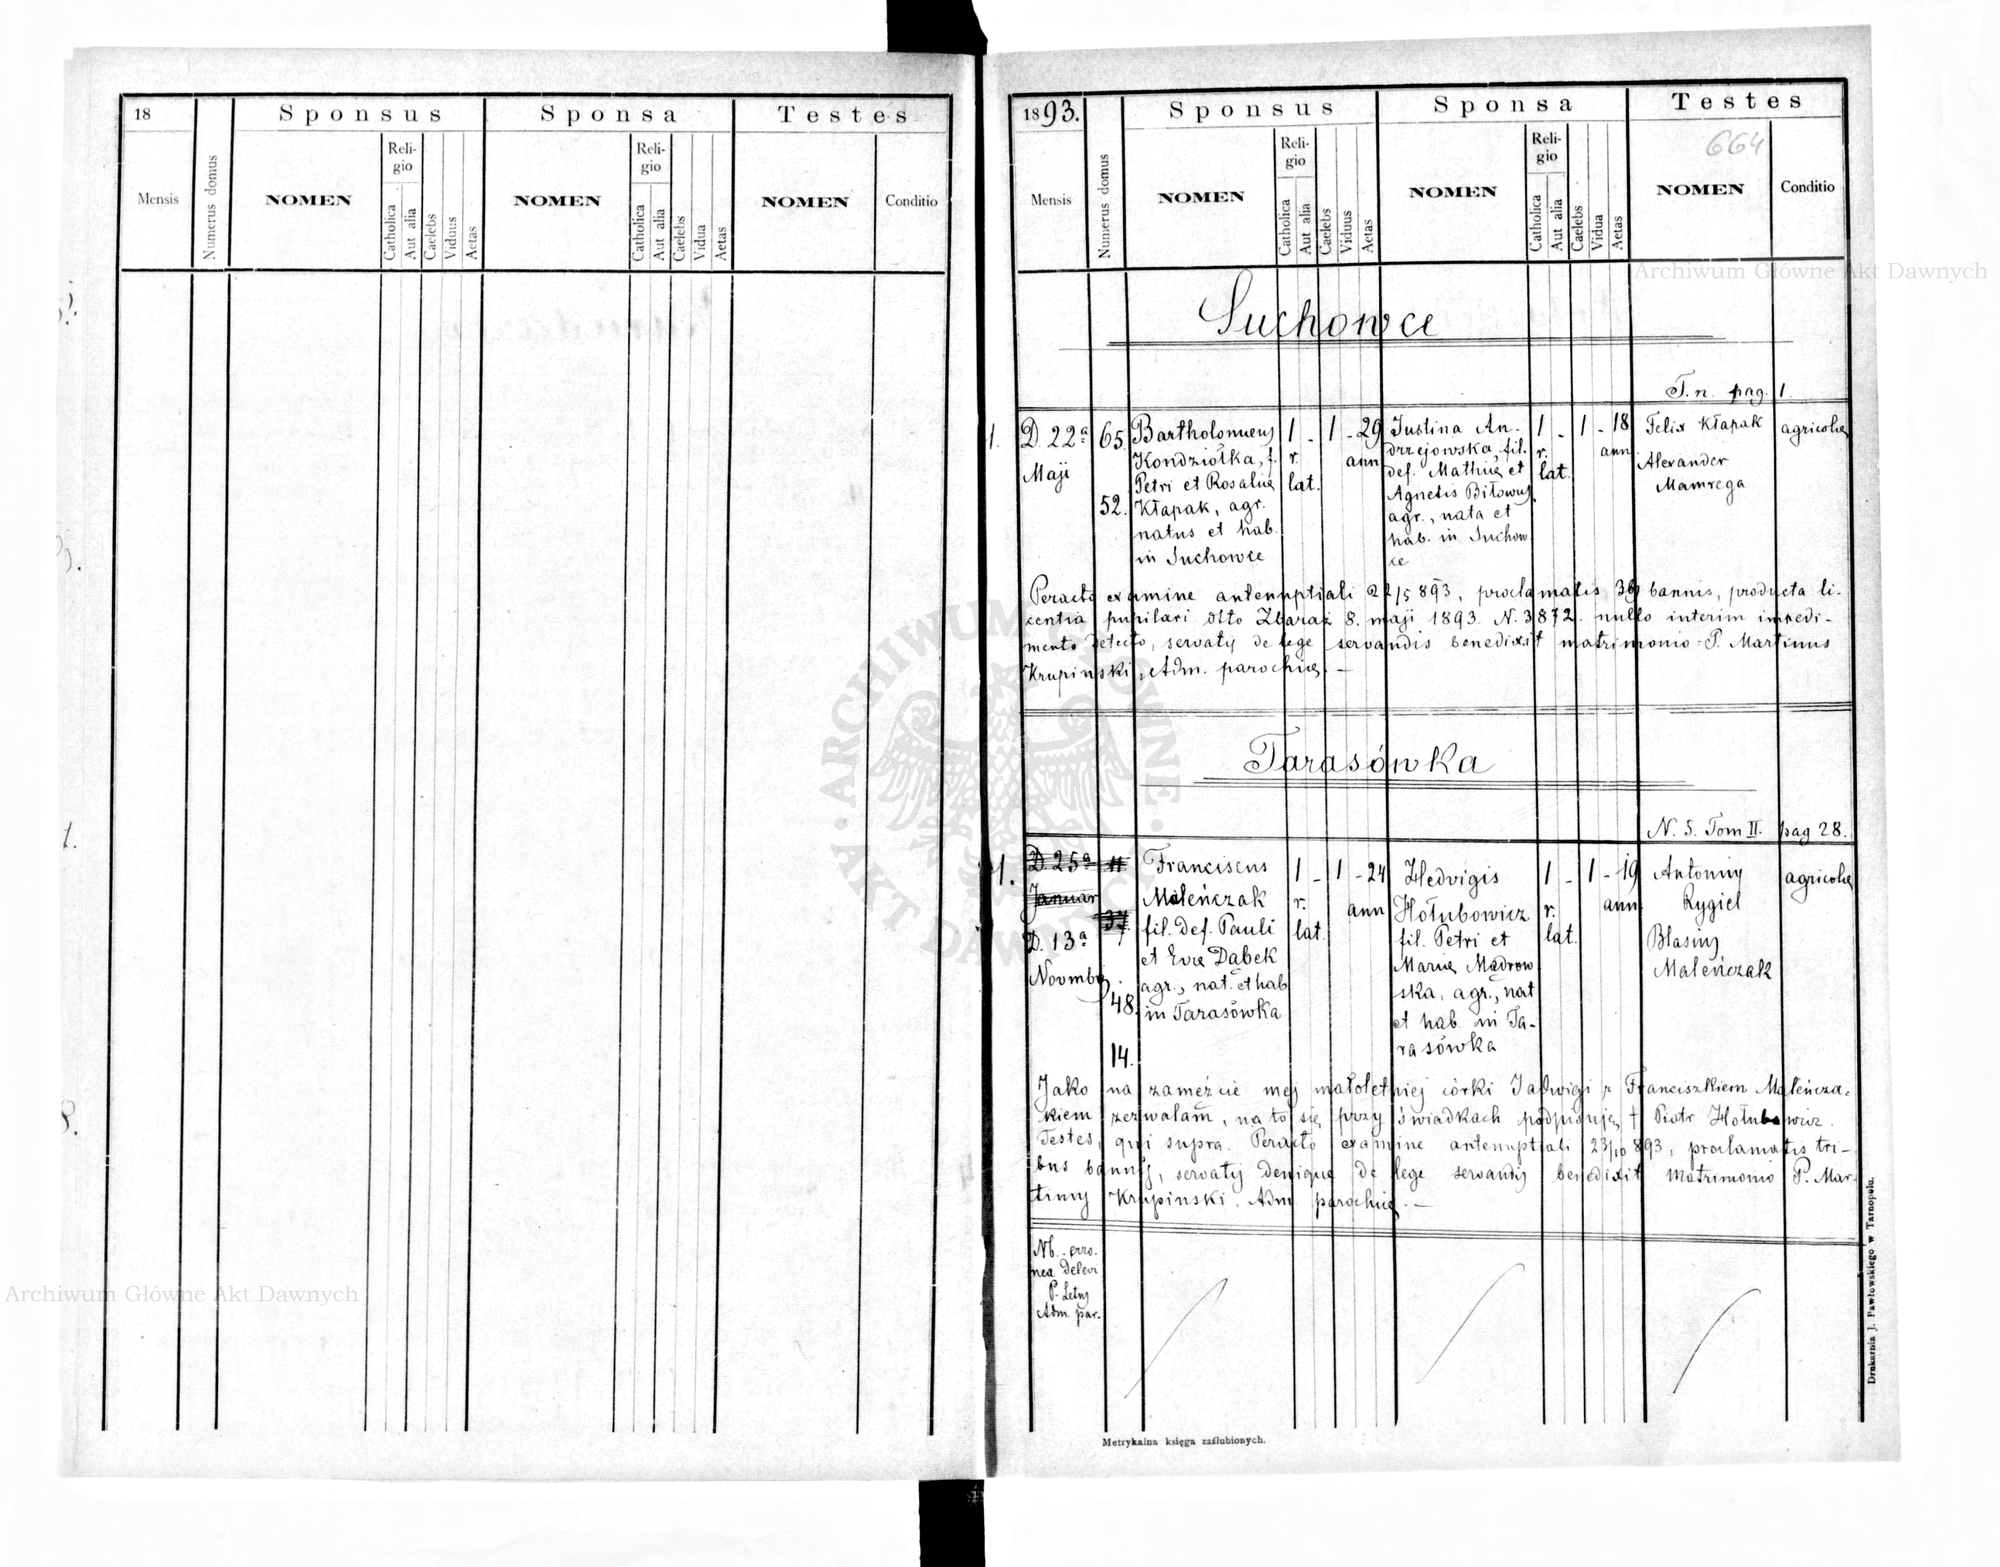 18
Sponsus
Sponsa
Testes
Mensis
Numerus domus
NOMEN
Religio
Catholica
Aut alia
Caelebs
Viduus
Aetas
NOMEN
Religio
Catholica
Aut alia
Caelebs
Vidua
Aetas
NOMEN
Conditio
1893.
Sponsus
Sponsa
Testes
664
Mensis
Numerus domus
NOMEN
Religio
Catholica
Aut alia
Caelebs
Viduus
Aetas
NOMEN
Religio
Catholica
Aut alia
Caelebs
Vidua
Aetas
NOMEN
Conditio
Archiwum Główne Akt Dawnych
Suchowce
T. n. pag. 1.
1.
D. 22ª
Maji
65.
52.
Bartholomeus
Kondziołka, f.
Petri et Rosaliæ
Kłapak, agr.
natus et hab.
in Suchowce
1 - 1 - 29
r. ann
lat.
Justina An-
drzejowska, fil.
def. Mathiæ et
Agnetis Biłowus
agr., nata et
hab. in Suchow
ce
1 - 1 - 18
r. ann
lat.
Felix Kłapak
Alexander
Mamrega
agricolæ
Peracto examine antenuptiali 22/5 893, proclamatis 3b bannis, producta li-
centia pupilari dtto Zbaraż 8. maji 1893. N. 3872. nullo interim impedi-
mento detecto, servatis de lege servandis benedixit matrimonio P. Martinus
Krupinski, Adm. parochiæ. —
Tarasówka
N. 5. Tom II. pag 28.
1.
D. 25ª
Januar
D. 13ª
Novmbr.
37
48.
14.
Franciscus
Maleńczak
fil. def. Pauli
et Evæ Dąbek
agr., nat. et hab
in Tarasówka
1 - 1 - 24
r. ann
lat.
Hedvigis
Hołubowicz
fil. Petri et
Mariæ Mądrow
ska, agr., nat
et hab. in Ta-
rasówka
1 - 1 - 19
r. ann
lat.
Antoniy
Rygiel
Blasius
Maleńczak
agricolæ
Jako na zamęźcie mej małoletniej córki Jadwigi z Franciszkiem Maleńcza-
kiem zezwalam, na to się przy świadkach podpisuję † Piotr Hołubowicz.
Testes, qui supra. Peracto examine antenuptiali 23/10 893, proclamatis tri-
bus bannis, servatis denique de lege servandis benedixit Matrimonio P. Mar-
tinus Krupinski. Adm. parochiæ. —
Nb. erro-
nea delevi
P. Letny
Adm. par.
Archiwum Główne Akt Dawnych
ARCHIWUM GŁÓWNE · AKT DAWNYCH ·
Drukarnia J. Pawłowskiego w Tarnopolu.
Metrykalna księga zaślubionych.